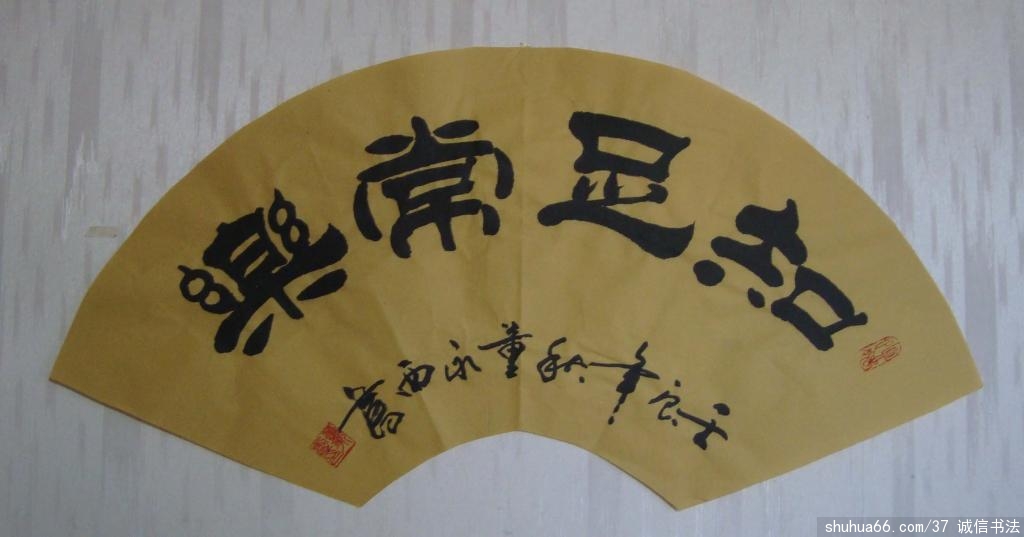 知足常樂
壬辰年秋董永西書
shuhua66.com/37 诚信书法